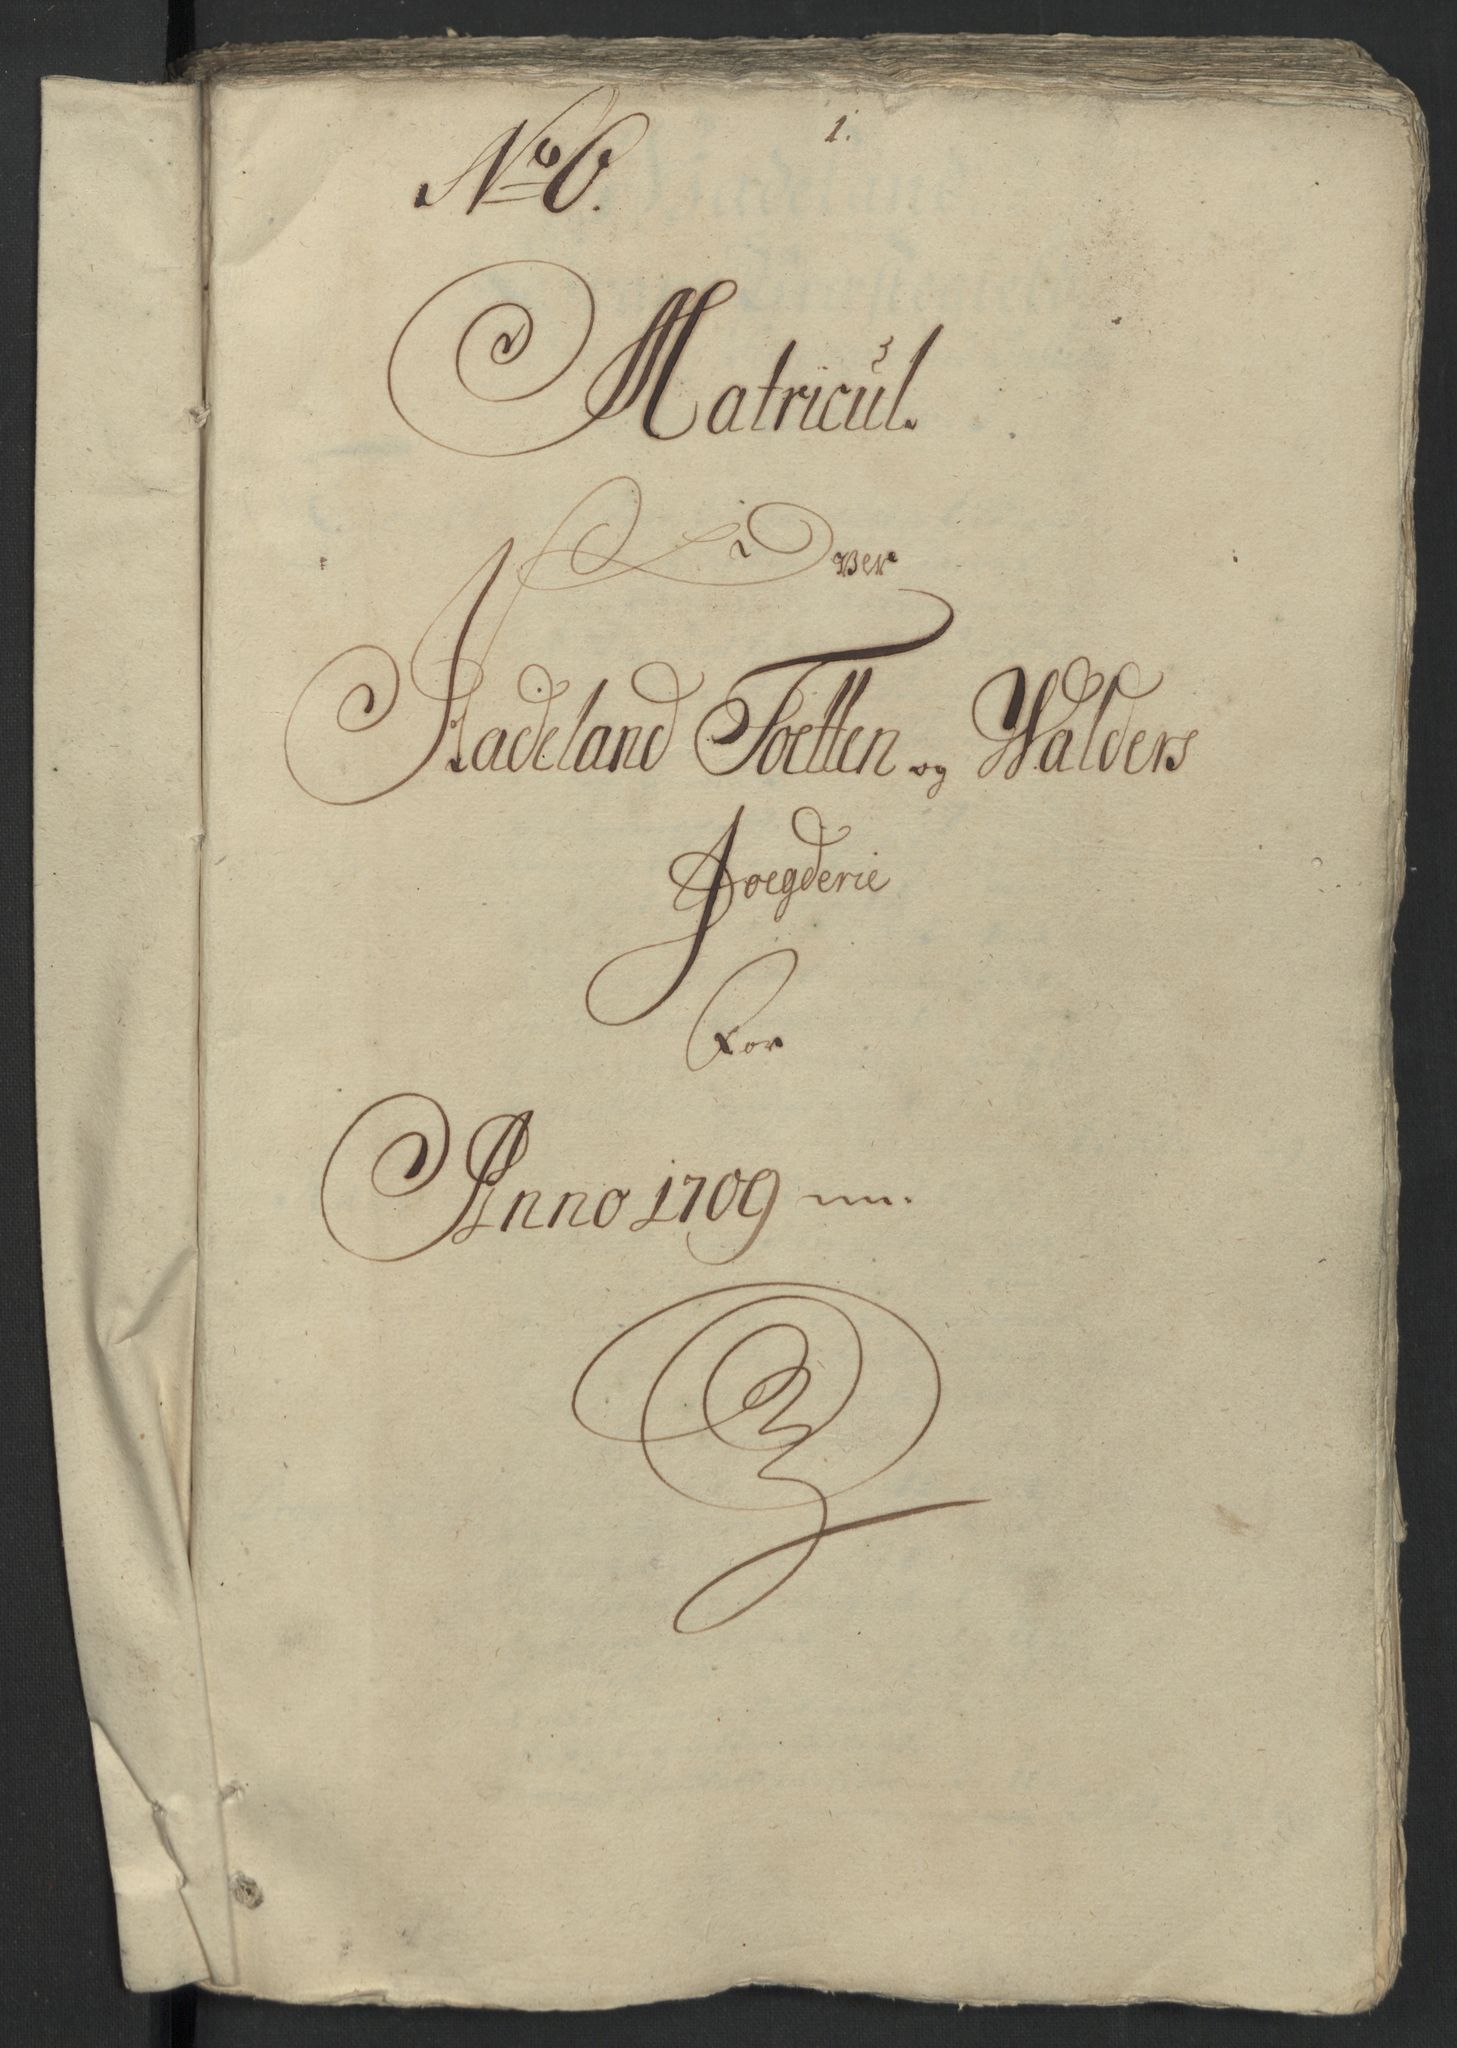 No 6.
1.
Matricul.
Over
Hadeland Toetten og Walders
Foegderie
For
Anno 1709